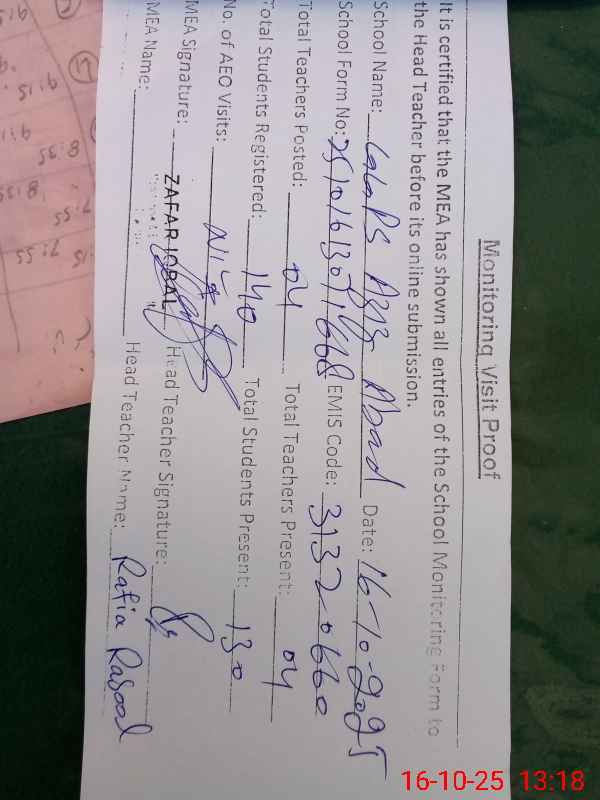 Monitoring Visit Proof
It is certified that the MEA has shown all entries of the School Monitoring Form to
the Head Teacher before its online submission.
School Name: Abad Date: 16-10-2025
School Form No: EMIS Code: 31320660
Total Teachers Posted: 04 Total Teachers Present: 04
Total Students Registered: 140 Total Students Present: 130
No. of AEO Visits: Nil
MEA Signature: ZAFAR IQBAL Head Teacher Signature:
MEA Name: Head Teacher Name: Rafia Rasool
8:35
7:55
7:55
9:15
16-10-25 13:18